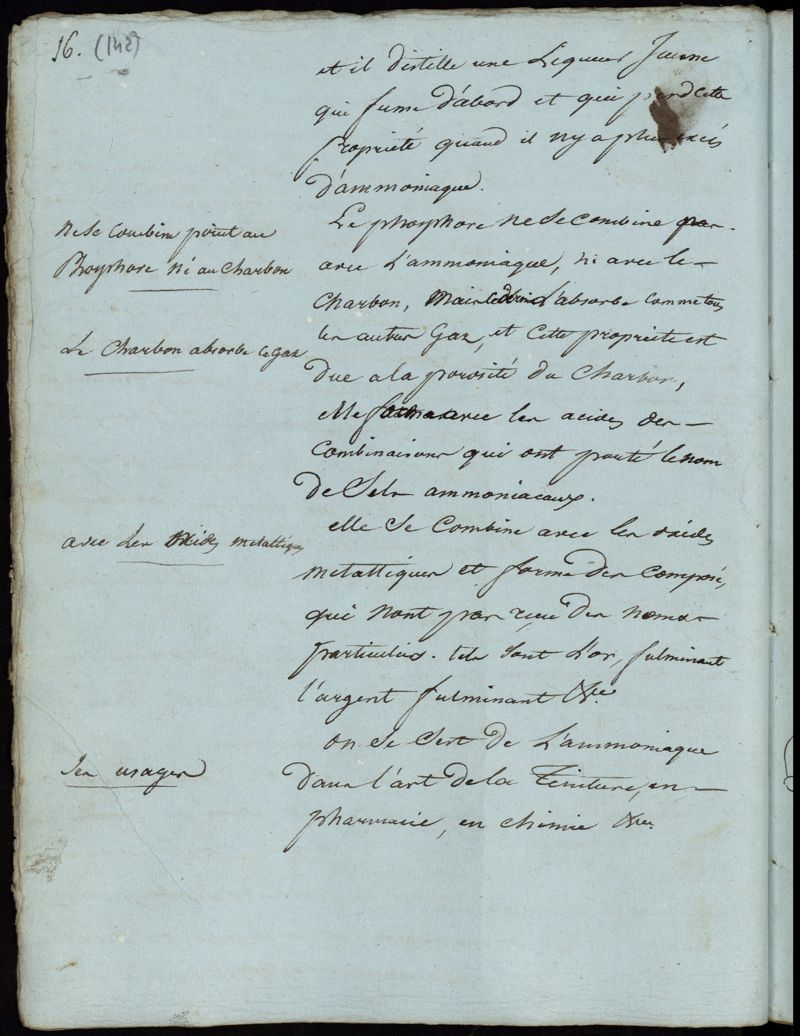 16. (142)
et il distille une Liqueur Jaune
qui fume d'abord et qui perd cette
propriété quand il n'y a plus excés
d'ammoniaque.
Ne Se Combine point au
Phosphore Ni au Charbon
Le phosphore Ne Se Combine pas
avec L'ammoniaque, Ni avec le
Charbon, Mais L'absorbe Comme tous
Le Charbon absorbe le gaz
les autres Gaz, et Cette propriete est
Due a la porosité du Charbon,
elle forme avec les acides des
Combinaisons qui ont porté le nom
De Sels ammoniacaux.
avec Les oxides metalliques
elle Se Combine avec les oxides
Metalliques et forme des Composés,
qui Nont pas reçu des noms
particuliers. tels Sont L'or, fulminant
l'argent fulminant &ce
on Se Sert de L'ammoniaque
Ses usages
Dans l'art de la Teinture, en
pharmacie, en chimie &ce.